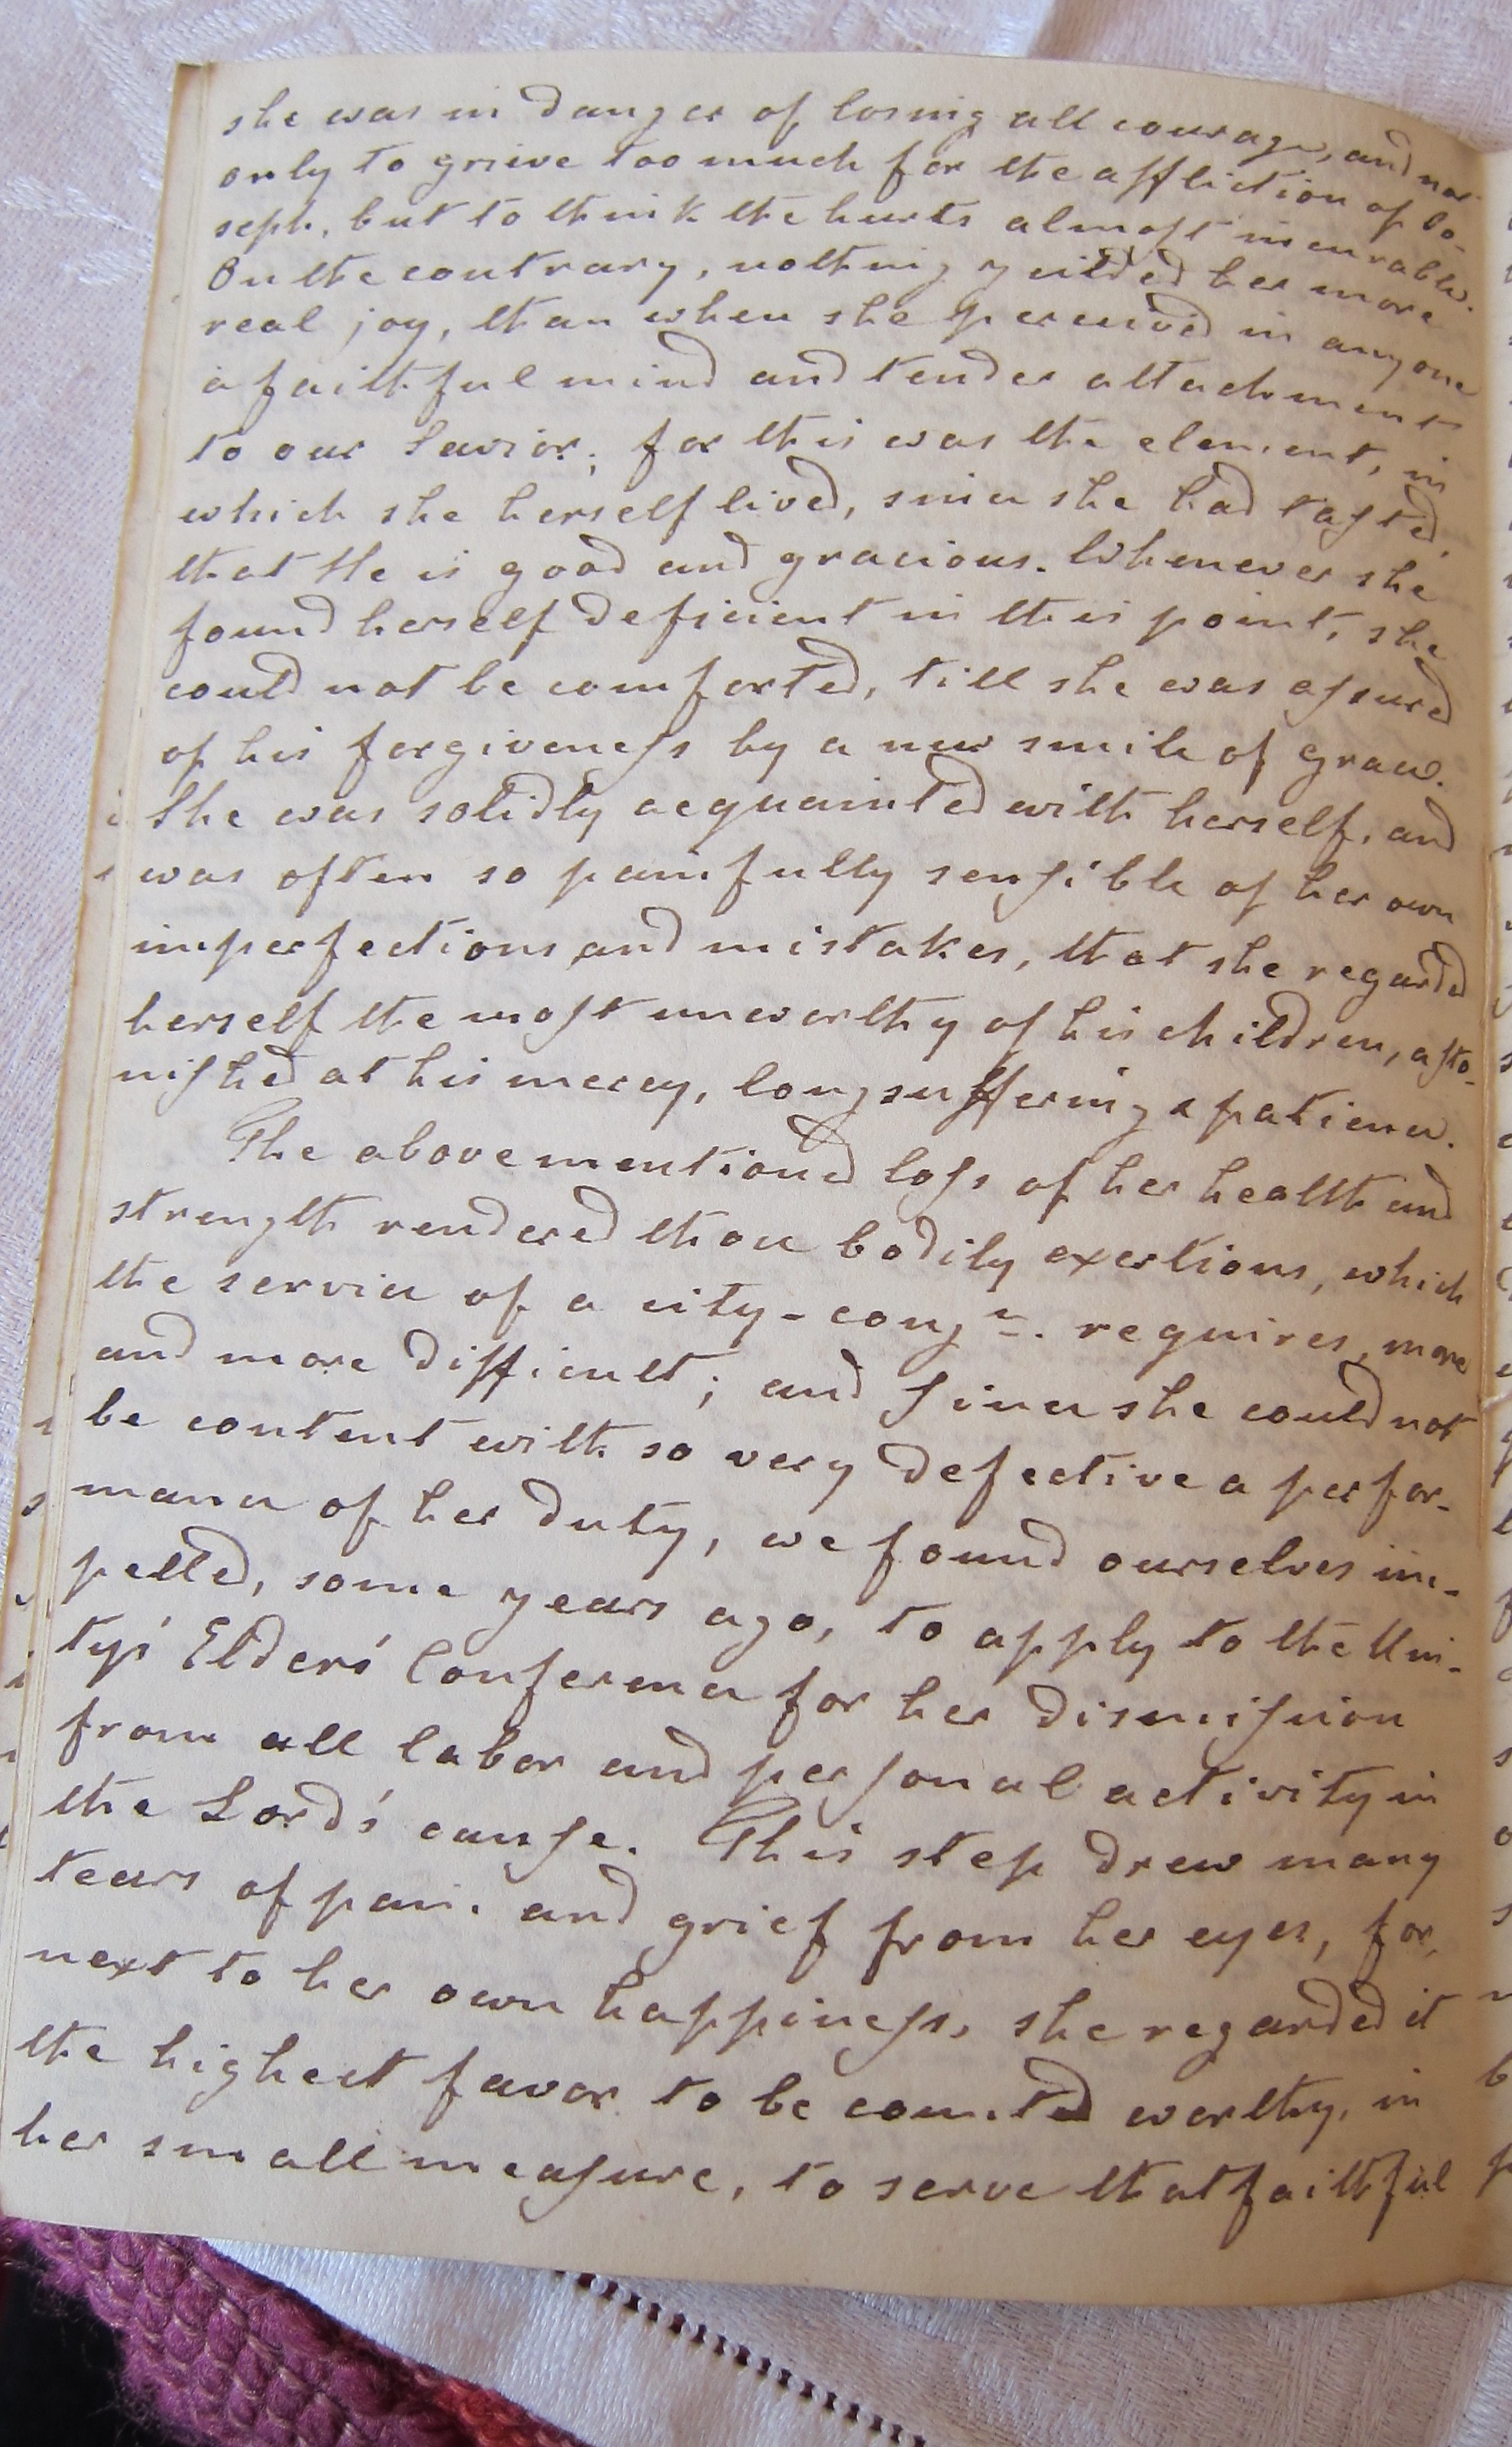 she was in danger of losing all courage, and not
only to grieve too much for the affliction of Jo-
seph, but to think the hurts almost incurable.
On the contrary, nothing yielded her more
real joy, than when she perceived in anyone
a faithful mind and tender attachment
to our Savior; for this was the element, in
which she herself lived, since she had tasted,
that He is good and gracious. Whenever she
found herself deficient in this point, she
could not be comforted, till she was assured
of his forgiveness by a new smile of grace.
She was solidly acquainted with herself, and
was often so painfully sensible of her own
imperfections and mistakes, that she regarded
herself the most unworthy of his children, asto-
nished at his mercy, longsuffering & patience.
The abovementioned loss of her health and
strength rendered those bodily exertions, which
the service of a city-congn. requires, more
and more difficult; and since she could not
be content with so very defective a perfor-
mance of her duty, we found ourselves im-
pelled, some years ago, to apply to the Uni-
tys' Elders' Conference for her dismission
from all labor and personal activity in
the Lord's cause. This step drew many
tears of pain and grief from her eyes, for,
next to her own happiness, she regarded it
the highest favor to be counted worthy, in
her small measure, to serve that faithful